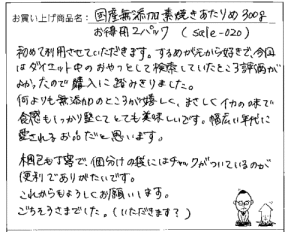 お買い上げ商品名: 国産無添加素焼きあたりめ300g
お得用2パック (sele-020)
初めて利用させていただきます。するめが元から好きで、今回
はダイエット中のおやつとして検索していたところ評価が
よかったので購入に踏みきりました。
何よりも無添加のところが嬉しく、まさしくイカの味で
食感もしっかり堅くてとても美味しいです。幅広い年代に
愛されるお品だと思います。
梱包も丁寧で、個分けの袋にはチャックがついているのが
便利でありがたいです。
これからもよろしくお願いします。
ごちそうさまでした。(いただきます?)